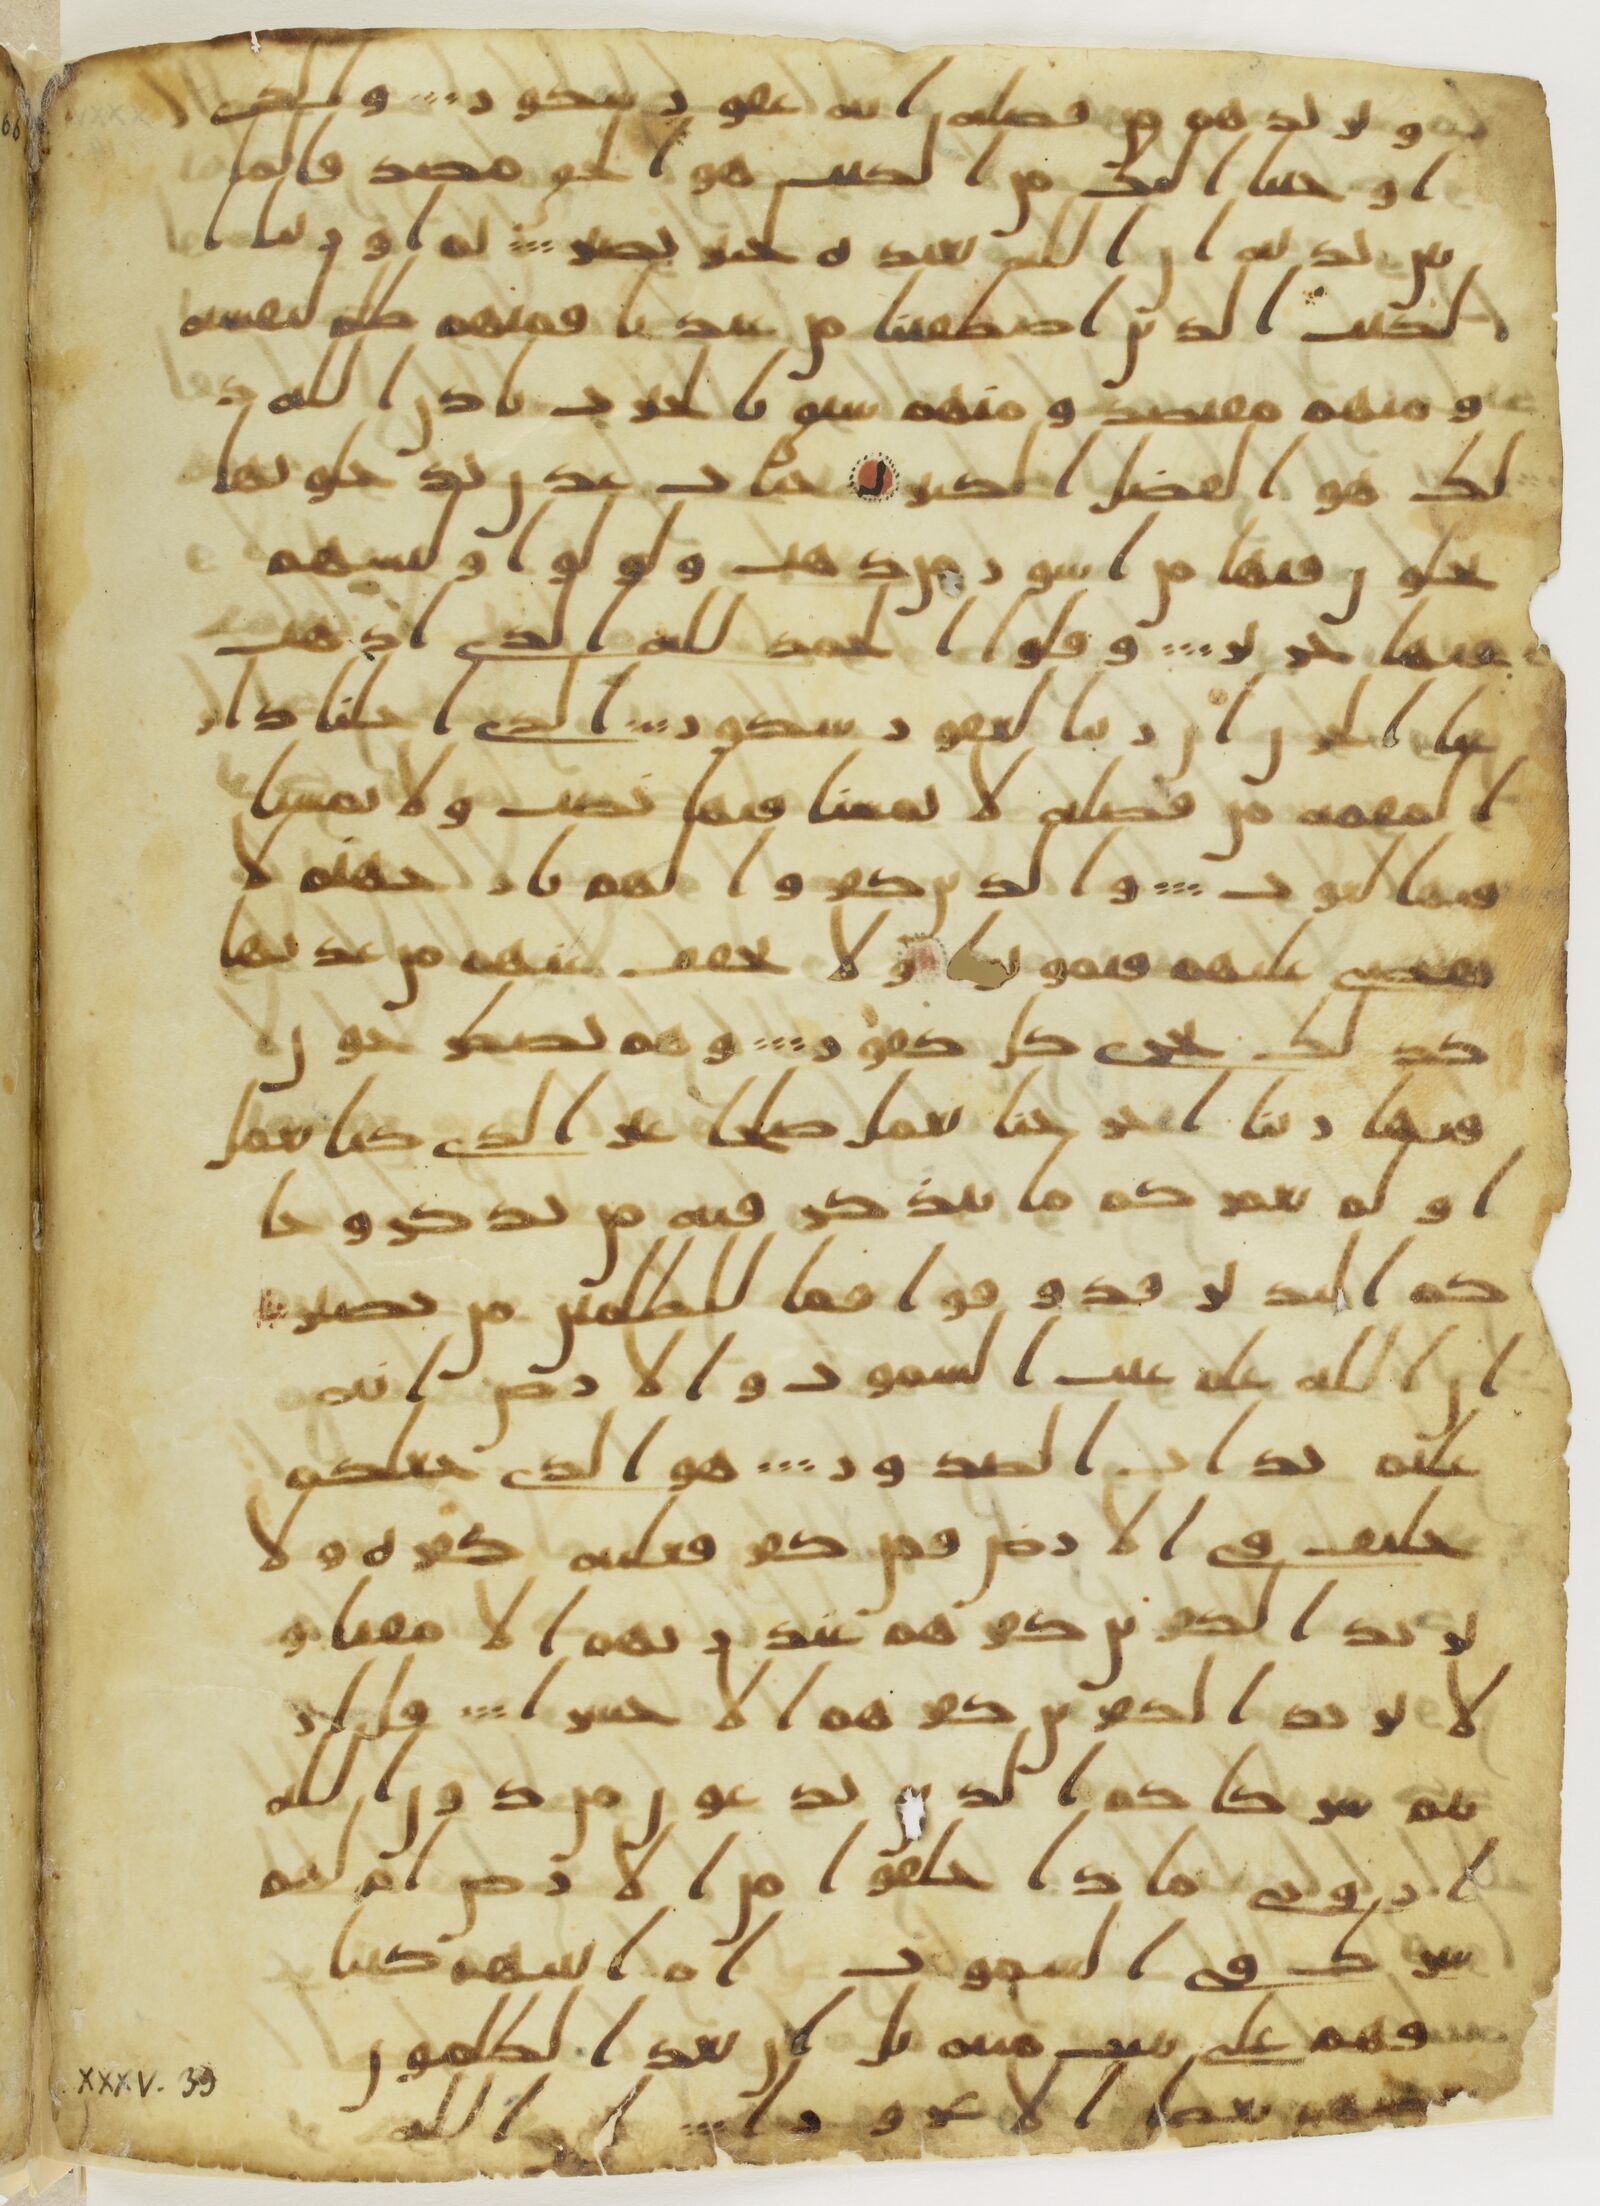 ويزيدهم من فضله انه غفور شكور والذي
اوحينا اليك من الكتب هو الحق مصدقا لما
بين يديه ان الله بعبده لخبير بصير ثم اورثنا ا
لكتب الذين اصطفينا من عبدنا فمنهم ظلم لنفسه
ومنهم مقتصد ومنهم سبق بالخيرت باذن الله ذ
لك هو الفضل الكبير جنت عدن يدخلونها
يحلون فيها من اسور من ذهب ولولوا ولبسهم
فيها حرير وقلوا الحمد لله الذي اذهب
عنا الحزن ان ربنا لغفور شكور الذي احلنا دار
المقمه من فضله لا يمسنا فيها نصب ولا يمسنا
فيها لغوب والذين كفروا لهم نار جهنم لا
يقضى عليهم فيموتوا ولا يخفف عنهم من عذبها
كذلك نجزي كل كفور وهم يصطرخون
فيها ربنا اخرجنا نعمل صلحا غير الذي كنا نعمل
اولم نعمركم ما يتذكر فيه من تذكر وجا
كم النذير فذوقوا فما للظلمين من نصير
ان الله علم غيب السموت والارض انه
عليم بذات الصدور هو الذي جعلكم
خليف في الارض فمن كفر فعليه كفره ولا
يزيد الكفرين كفرهم عند ربهم الا مقتا و
لا يزيد الكفرين كفرهم الا خسرا قل ار
يتم شركاكم الذين تدعون من دون الله
اروني ماذا خلقوا من الارض ام لهم
شرك في السموت ام اتينهم كتبا
فهم على بينت منه بل ان يعد الظلمون
بعضهم بعضا الا غرورا ان الله
XXXV. 39